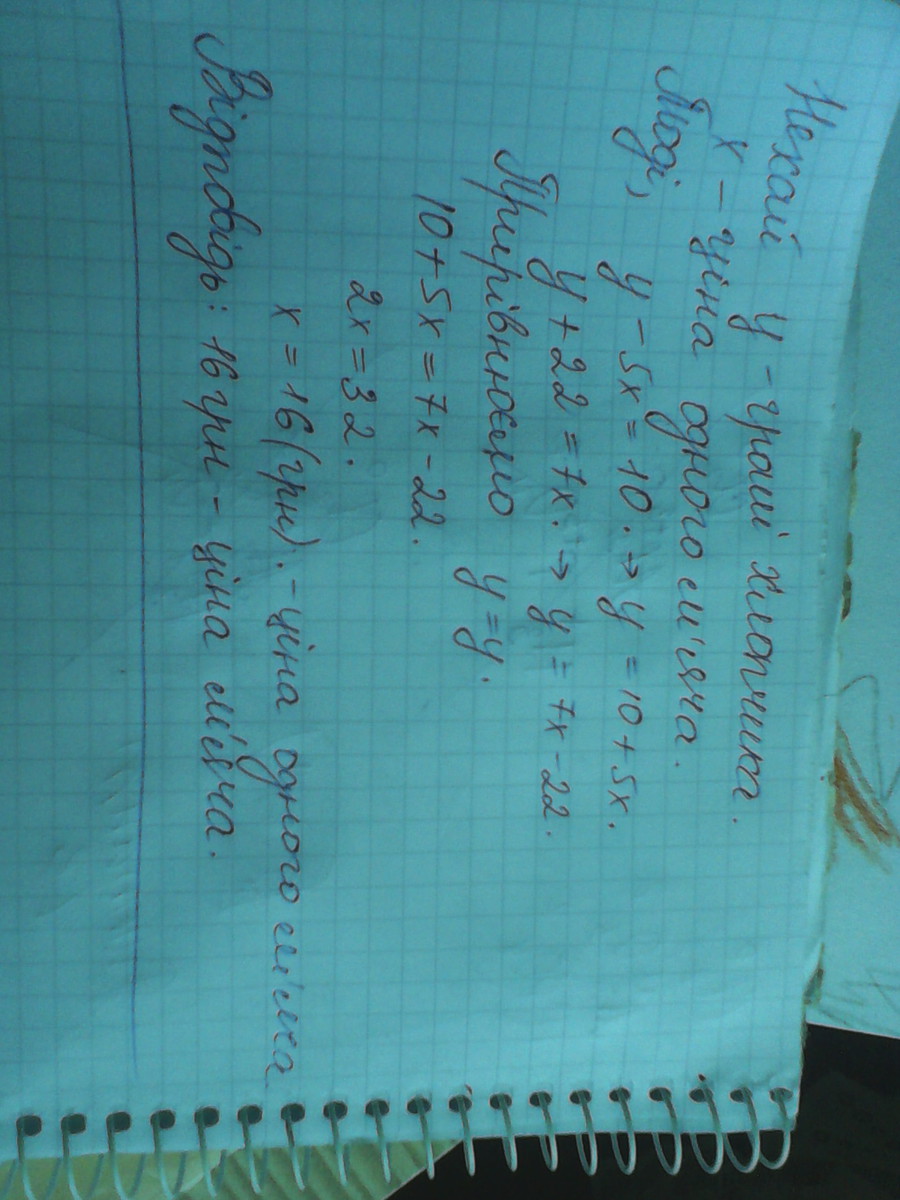 Нехай y - гроші хлопчика.
x - ціна одного м'яча.
Тоді, y - 5x = 10. → y = 10 + 5x.
y + 22 = 7x. → y = 7x - 22.
Прирівнюємо y = y.
10 + 5x = 7x - 22.
2x = 32.
x = 16 (грн). - ціна одного м'яча
Відповідь: 16 грн - ціна м'яча.